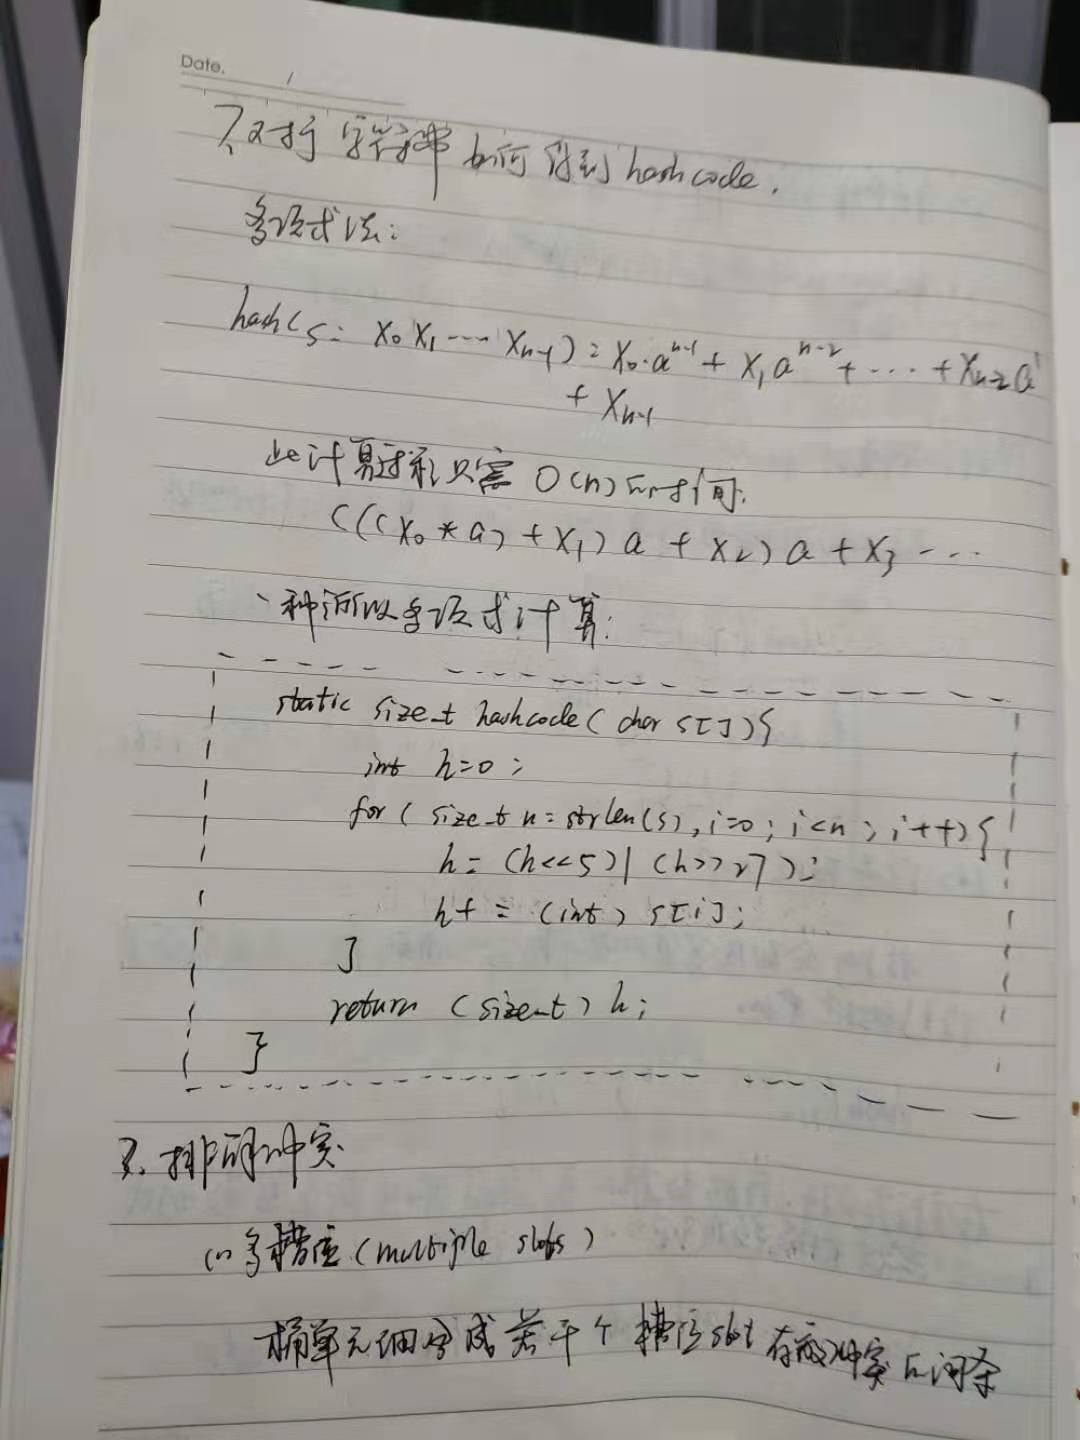 Date. /
7.对于字符串如何得到hashcode.
多项式法:
hash(s = x₀x₁ ---- xₙ₋₁) = x₀·aⁿ⁻¹ + x₁aⁿ⁻² + ... + xₙ₋₂a¹
+ xₙ₋₁
此计算过程只需O(n)的时间.
(((x₀*a) + x₁)a + x₂)a + x₃ ---
一种近似多项式计算:
static size_t hashcode( char s[]){
int h=0;
for( size_t n=strlen(s), i=0; i<n; i++){
h = (h<<5)|(h>>27);
h+ = (int) s[i];
}
return (size_t) h;
}
3.排解冲突
(1)多槽位(multiple slots)
桶单元细分成若干个槽位slot存放冲突的词条